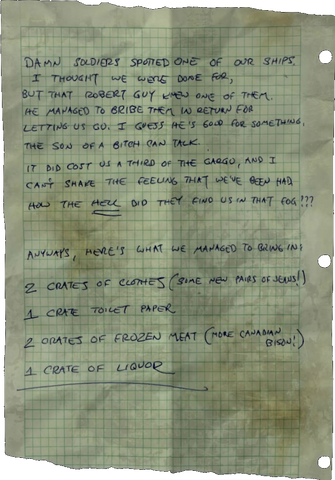 DAMN SOLDIERS SPOTTED ONE OF OUR SHIPS.
I THOUGHT WE WERE DONE FOR,
BUT THAT ROBERT GUY KNEW ONE OF THEM.
HE MANAGED TO BRIBE THEM IN RETURN FOR
LETTING US GO. I GUESS HE'S GOOD FOR SOMETHING.
THE SON OF A BITCH CAN TALK.
IT DID COST US A THIRD OF THE CARGO, AND I
CAN'T SHAKE THE FEELING THAT WE'VE BEEN HAD
HOW THE HELL DID THEY FIND US IN THAT FOG!??
ANYWAYS, HERE'S WHAT WE MANAGED TO BRING IN:
2 CRATES OF CLOTHES (SOME NEW PAIRS OF JEANS!)
1 CRATE TOILET PAPER
2 CRATES OF FROZEN MEAT (MORE CANADIAN BISON!)
1 CRATE OF LIQUOR